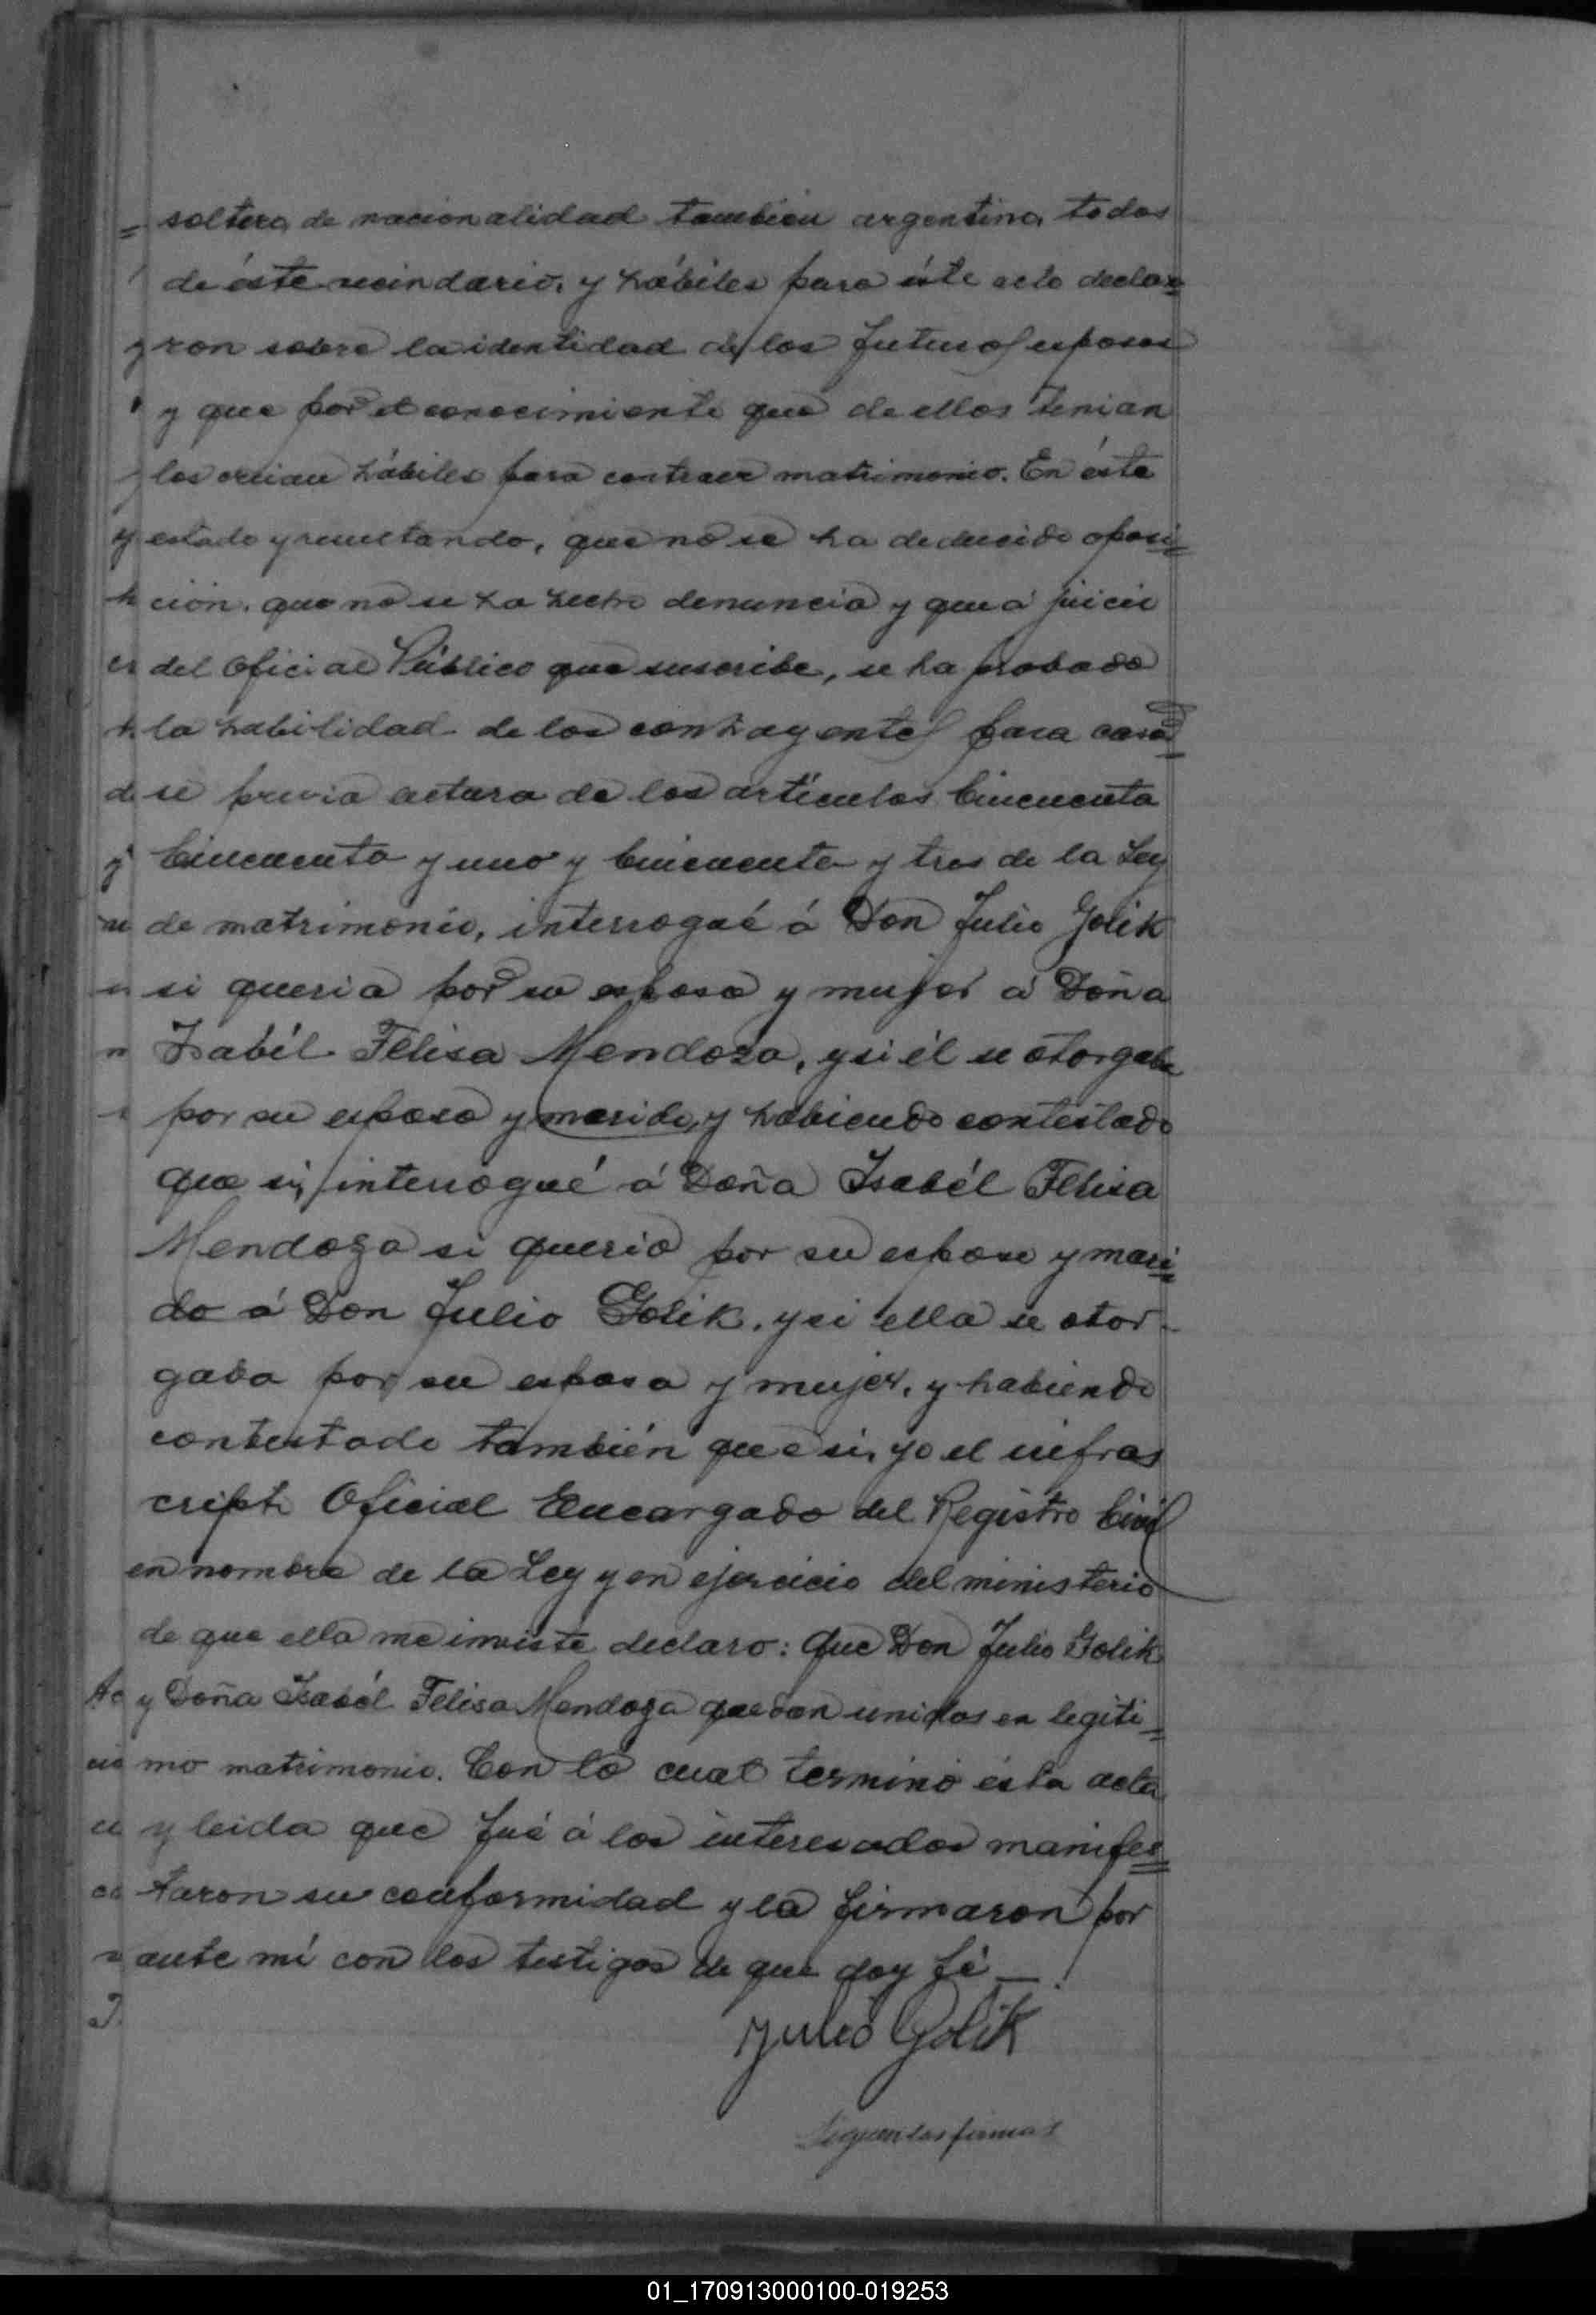 soltera, de nacionalidad tambien argentina, todos
de éste vecindario, y hábiles para éste acto declara=
ron sobre la identidad de los futuros esposos
y que por el conocimiento que de ellos tenian
los creian hábiles para contraer matrimonio. En éste
estado y resultando, que no se ha deducido oposi=
ción, que no se ha hecho denuncia y que á juicio
del Oficial Público que suscribe, se ha probado
la habilidad de los contrayentes para casar=
se previa lectura de los artículos Cincuenta
Cincuenta y uno y Cincuenta y tres de la Ley
de matrimonio, interrogué á Don Julio Golik
si queria por su esposa y mujer á Doña
Isabél Felisa Mendoza, y si él se otorgaba
por su esposo y marido, y habiendo contestado
que si, interrogué á Doña Isabél Felisa
Mendoza si queria por su esposo y mari=
do á Don Julio Golik, y si ella se otor-
gaba por su esposa y mujer, y habiendo
contestado también que si, yo el infras
cripto Oficial Encargado del Registro Civil
en nombre de la Ley y en ejercicio del ministerio
de que ella me inviste declaro: Que Don Julio Golik
y Doña Isabél Felisa Mendoza quedan unidos en legiti=
mo matrimonio. Con lo cual terminó ésta acta
y leida que fué á los interesados manifes=
taron su conformidad y la firmaron por
ante mí con los testigos de que doy fé
Julio Golik
Siguen las firmas
01_170913000100-019253